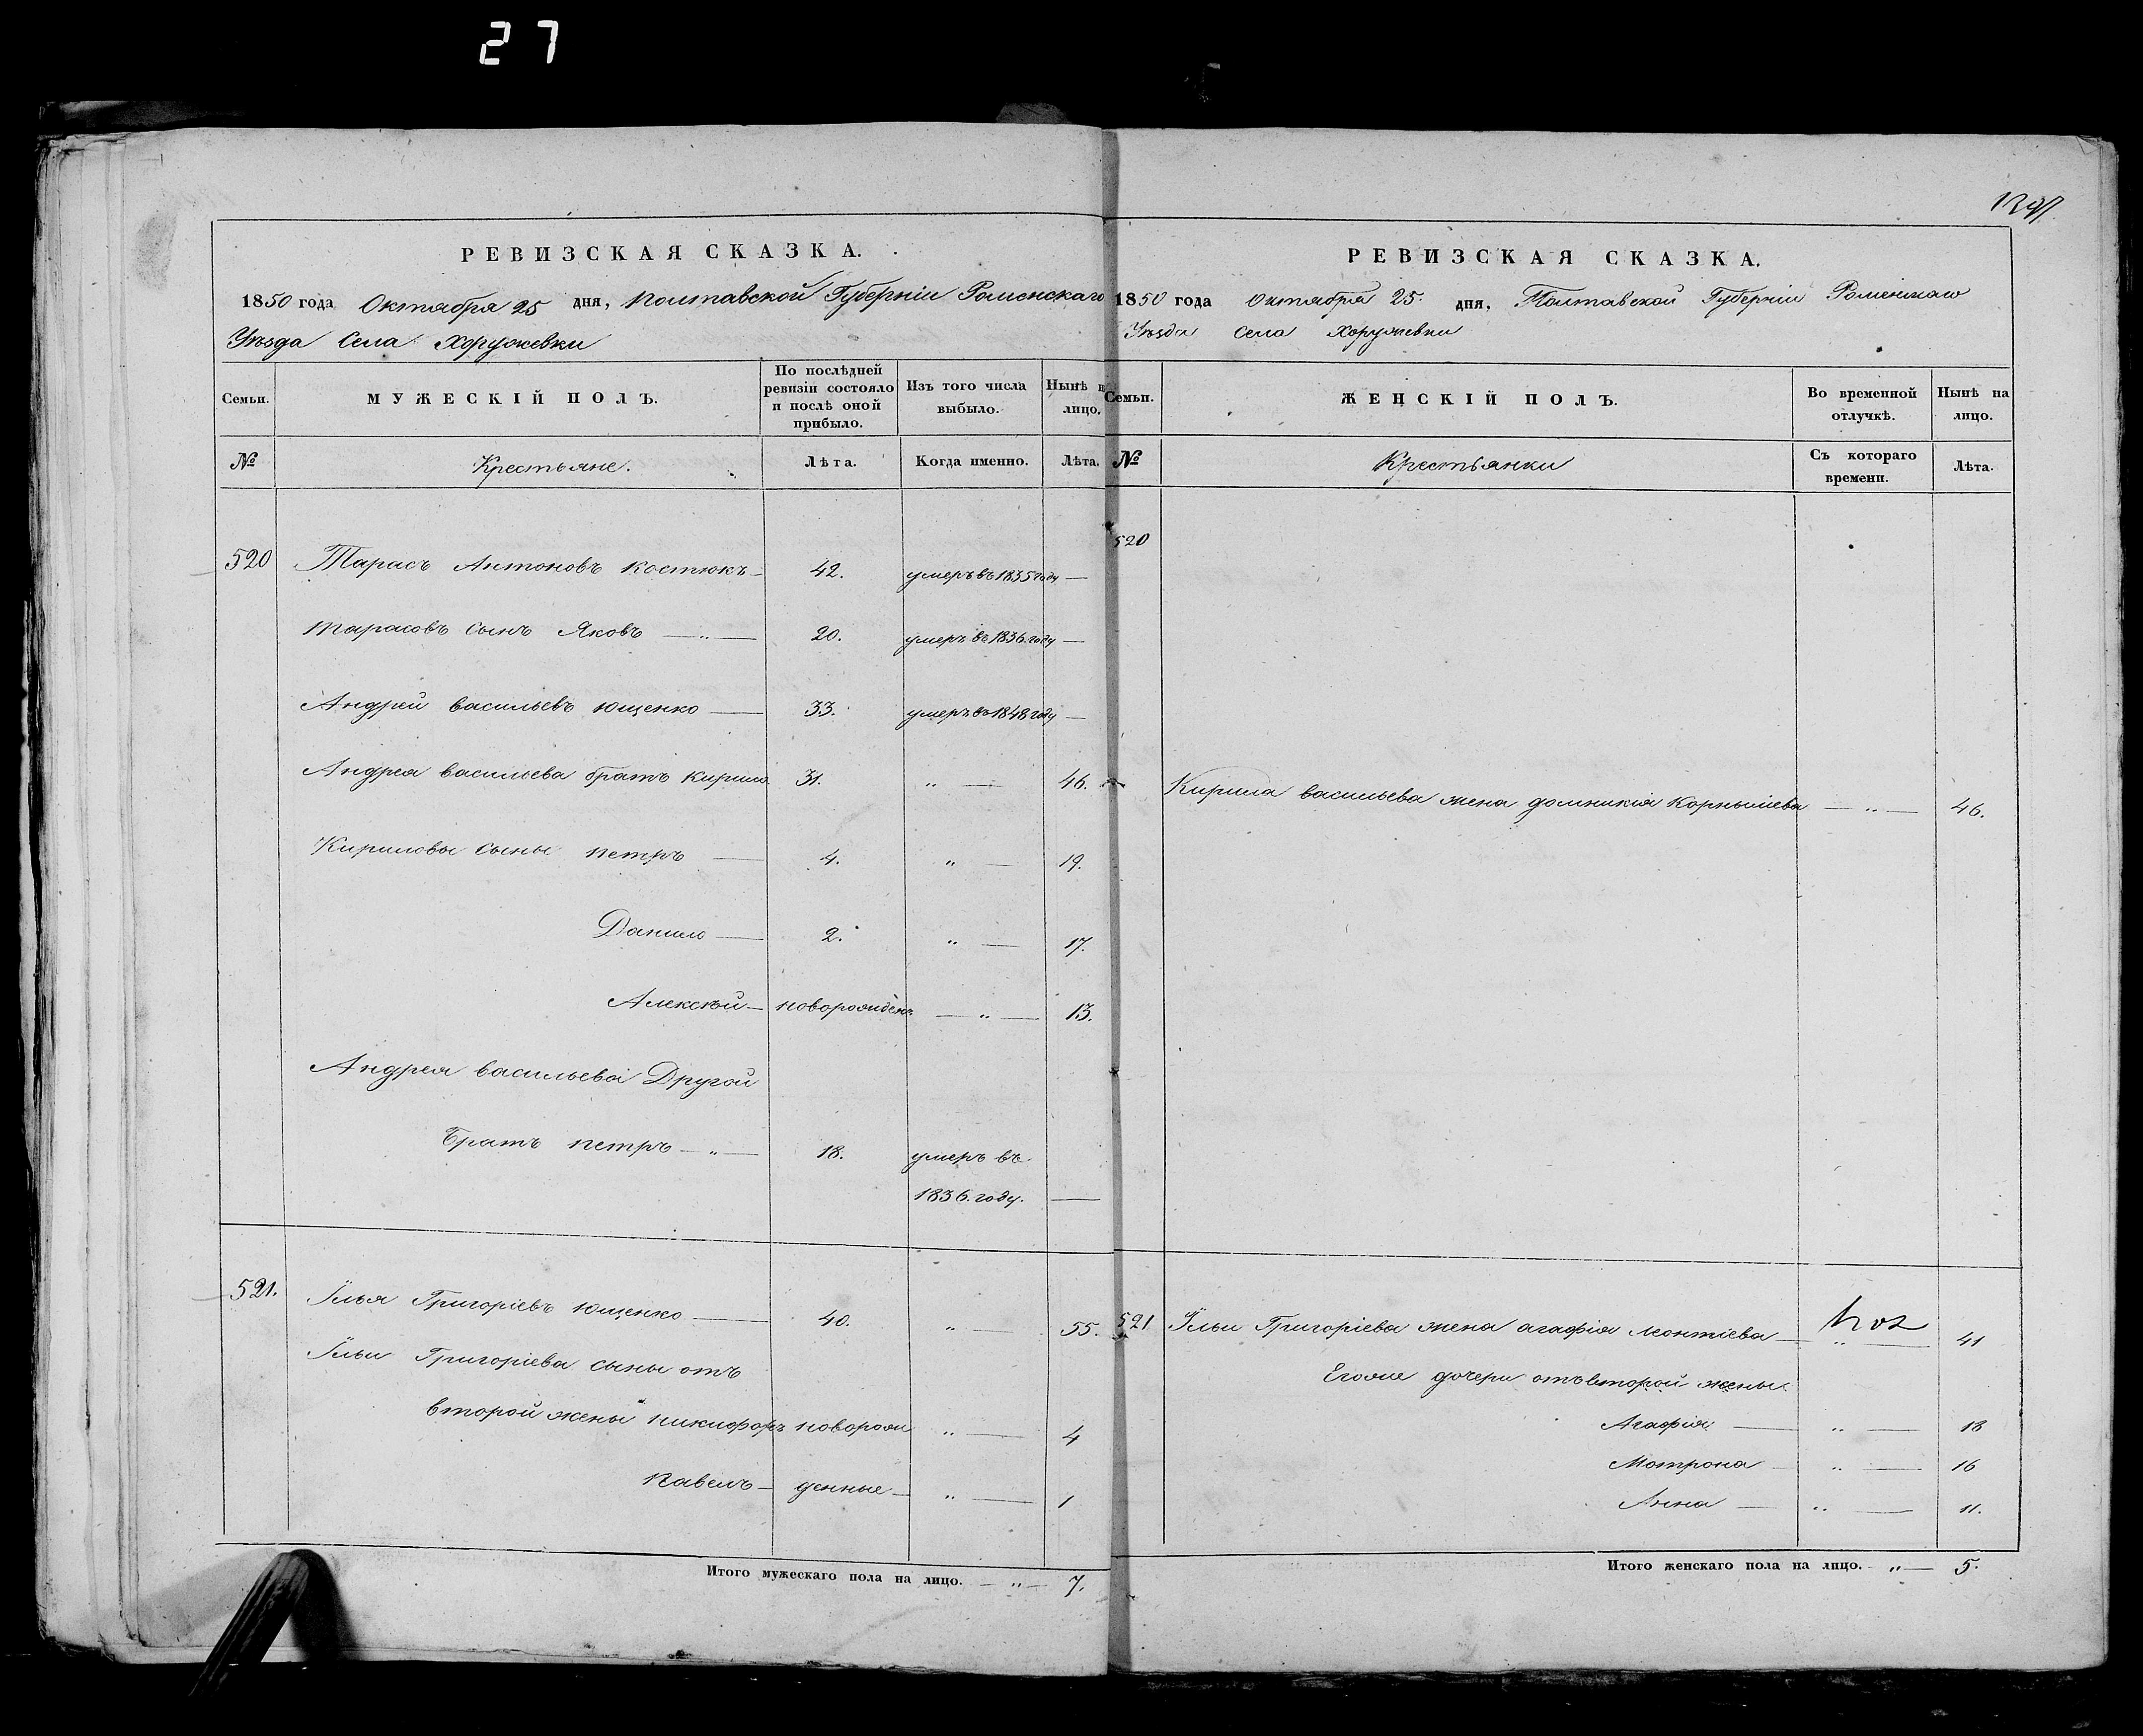 27
РЕВИЗСКАЯ СКАЗКА.
1850 года Октября 25 дня, Полтавской Губерніи Роменскаго
Уѣзда Села Хоружевки
Семьи.
МУЖЕСКІЙ ПОЛЪ.
По послѣдней ревизіи состояло и послѣ оной прибыло.
Изъ того числа выбыло.
Нынѣ на лицо.
№
Крестьяне.
Лѣта.
Когда именно.
Лѣта.
520 Тарасъ Антоновъ Костюкъ — 42. умеръ въ 1835 году —
Тарасовъ сынъ Яковъ — " — 20. умеръ въ 1836. году —
Андрей васильевъ Ющенко — 33. умеръ въ 1848 году —
Андрея васильева братъ Кирило 31. " — 46.
Кириловы сыны петръ — 4. " — 19.
Данило — 2. " — 17.
Алексѣй — новорожденъ — " — 13.
Андрея васильева Другой
братъ петръ — " — 18. умеръ въ
1836. году. —
521. Илья Григоріевъ Ющенко — 40. " — 55.
Ильи Григоріева сыны отъ
второй жены никифоръ новорож " — 4
павелъ — денные — " — 1
Итого мужескаго пола на лицо. — " — 7.
РЕВИЗСКАЯ СКАЗКА.
1850 года Октября 25. дня, Полтавской Губерніи Роменскаго
Уѣзда Села Хоружевки
Семьи.
ЖЕНСКІЙ ПОЛЪ.
Во временной отлучкѣ.
Нынѣ на лицо.
№
Крестьянки
Съ котораго времени.
Лѣта.
520
Кирила васильева жена домникія Корныліева — " — 46.
521 Ильи Григоріева жена агафія Леонтіева — " — 41
Егоже дочери отъ второй жены
Агафія — " — 18
Мотрона — " — 16
Анна — " — 11.
Итого женскаго пола на лицо. — " — 5.